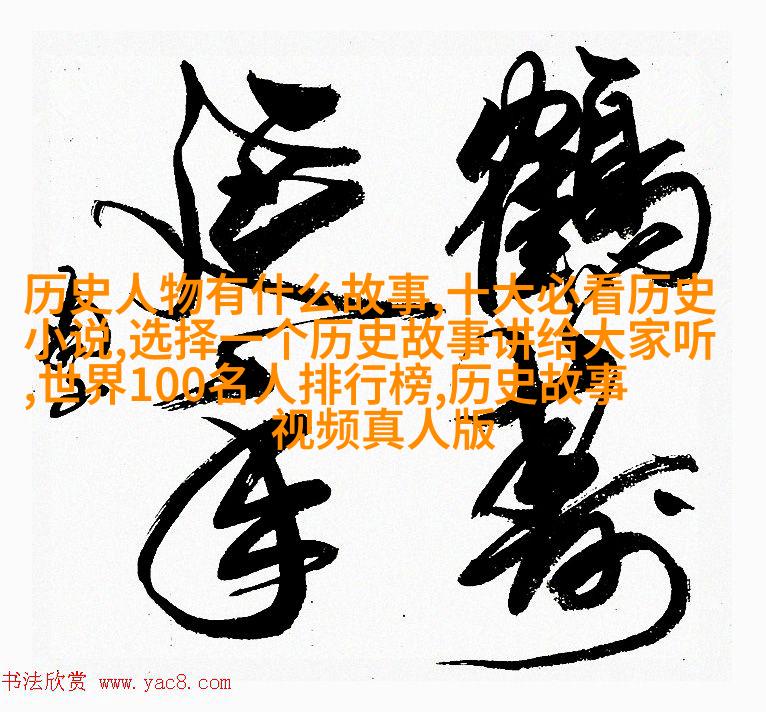 鶴寿
延年
历史人物有什么故事,十大必看历史
小说,选择一个历史故事讲给大家听
,世界100名人排行榜,历史故事
视频真人版
书法欣赏 www.yac8.com